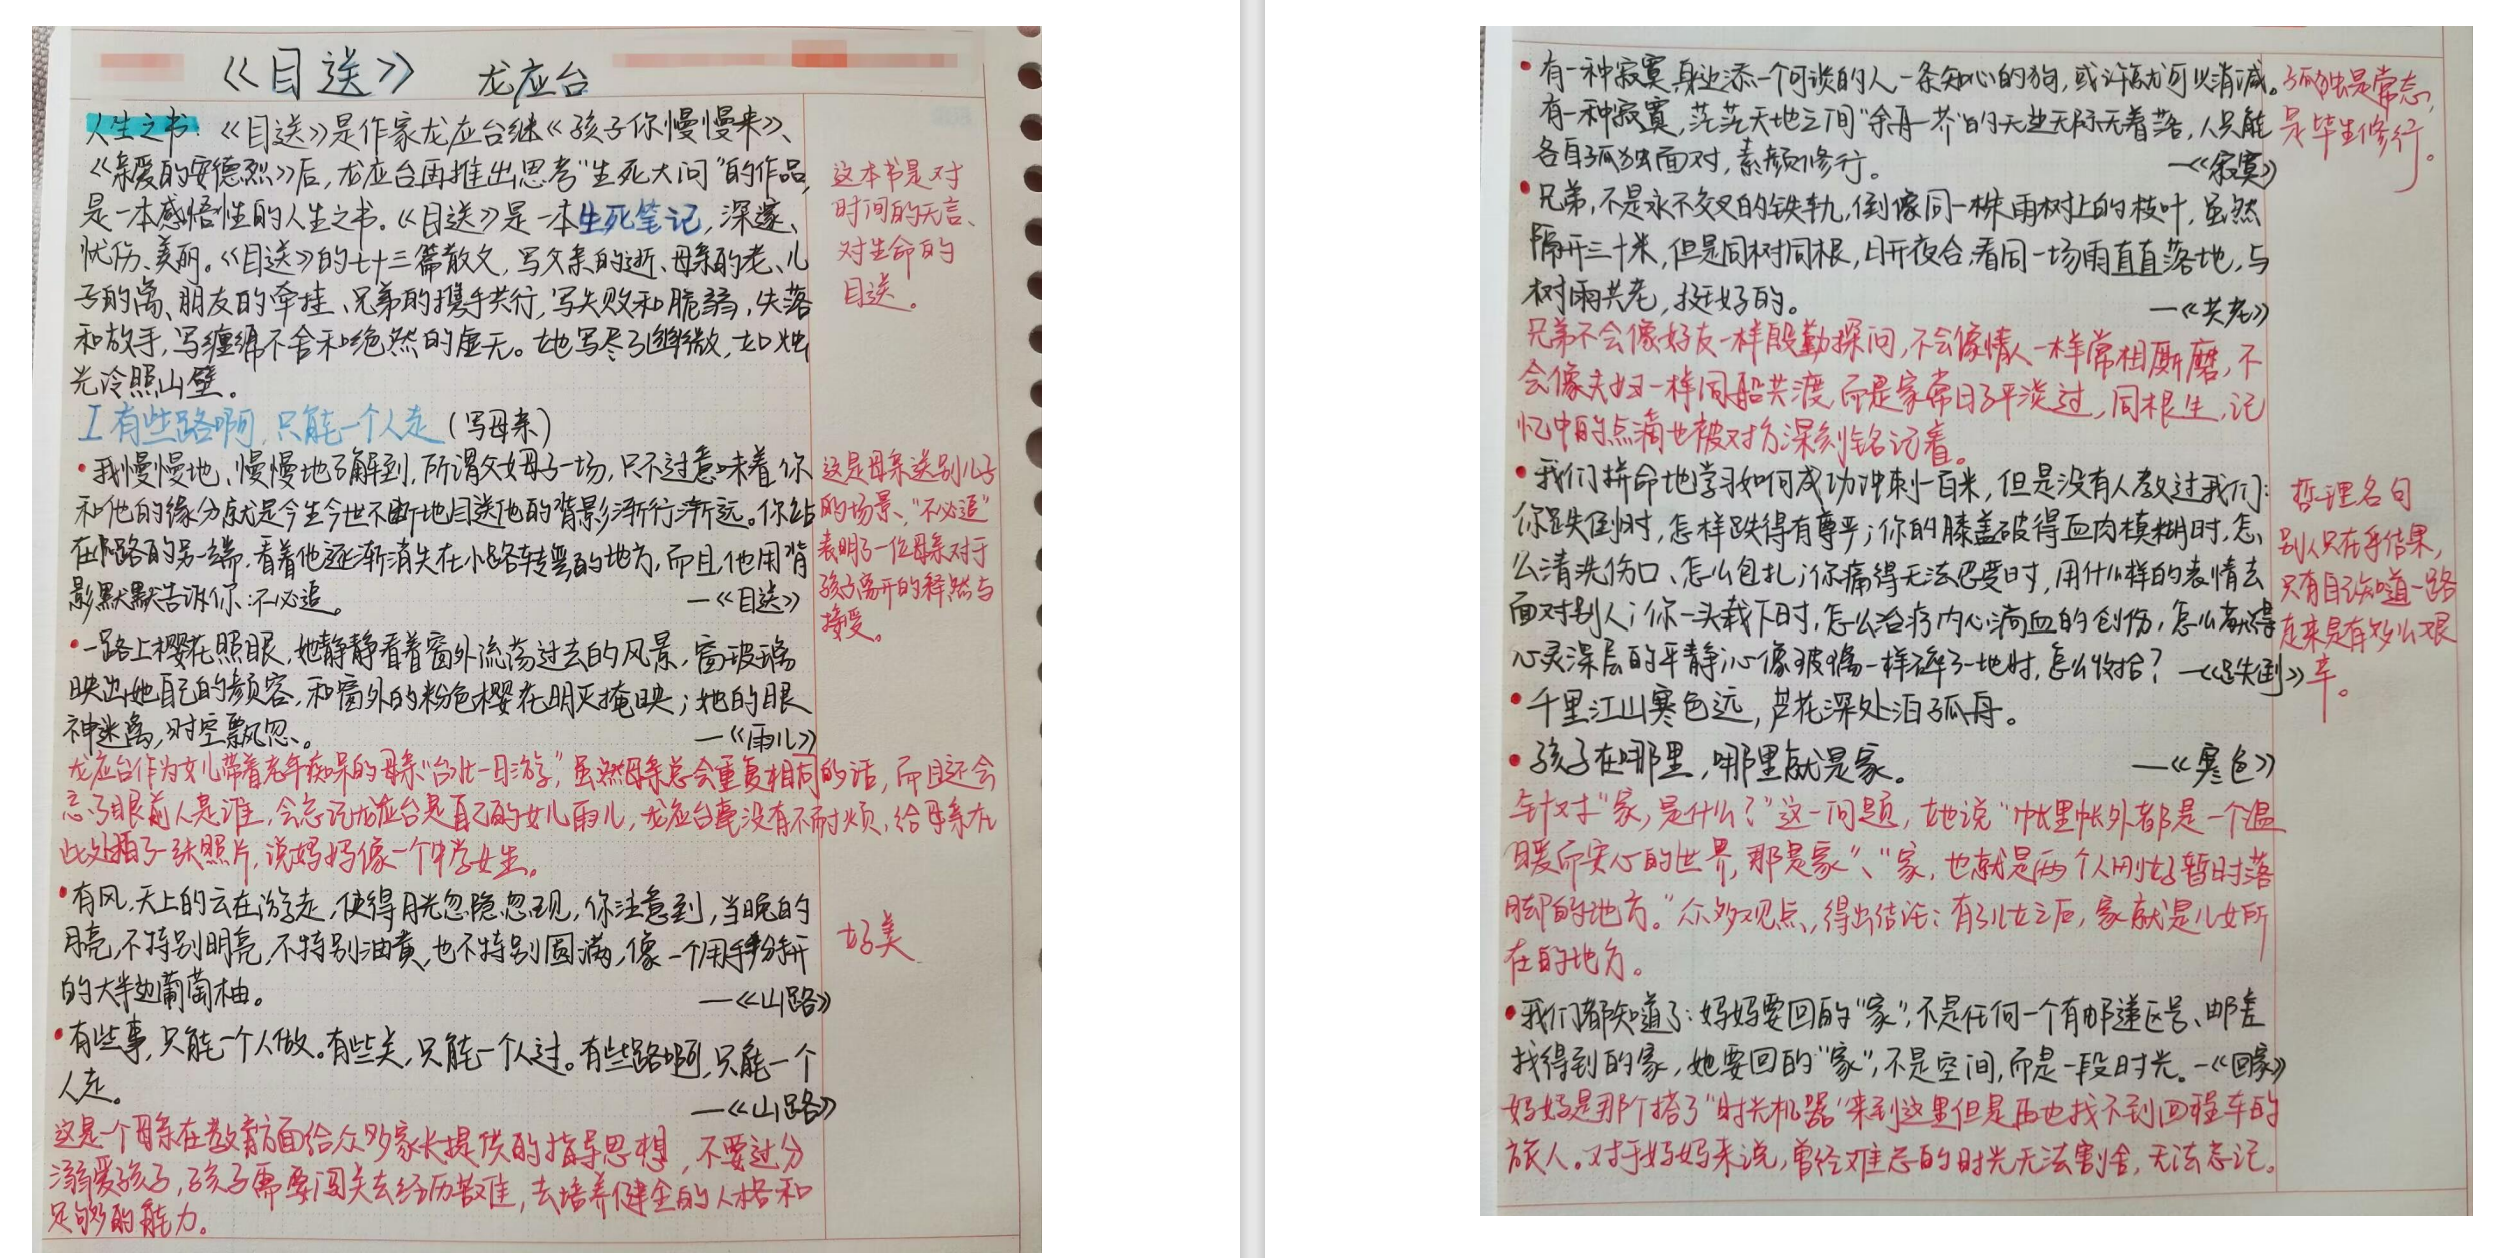 《目送》 龙应台
人生之书：《目送》是作家龙应台继《孩子你慢慢来》、
《亲爱的安德烈》后，龙应台再推出思考“生死大问”的作品，
是一本感悟性的人生之书。《目送》是一本生死笔记，深邃、
忧伤、美丽。《目送》的七十三篇散文，写父亲的逝、母亲的老、儿
子的离、朋友的牵挂、兄弟的携手共行，写失败和脆弱，失落
和放手，写缠绵不舍和绝然的虚无。她写尽了幽微，如烛
光冷照山壁。
这本书是对
时间的无言、
对生命的
目送。
I 有些路啊，只能一个人走（写母亲）
·我慢慢地、慢慢地了解到，所谓父女母子一场，只不过意味着你
和他的缘分就是今生今世不断地目送他的背影渐行渐远。你站
在小路的另一端，看着他逐渐消失在小路转弯的地方，而且，他用背
影默默告诉你：不必追。 —《目送》
这是母亲送别儿子
的场景、“不必追”
表明了一位母亲对于
孩子离开的释然与
接受。
·一路上樱花照眼，她静静看着窗外流荡过去的风景，窗玻璃
映出她自己的颜容，和窗外的粉色樱花明灭掩映；她的眼
神迷离，时空飘忽、。 —《雨儿》
龙应台作为女儿带着老年痴呆的母亲“台北一日游”，虽然母亲总会重复相同的话，而且还会
忘了眼前人是谁，会忘记龙应台是自己的女儿雨儿，龙应台毫没有不耐烦，给母亲在
此处拍了一张照片，说妈妈像一个中学女生。
·有风，天上的云在游走，使得月光忽隐忽现，你注意到，当晚的
月亮，不特别明亮，不特别油黄，也不特别圆满，像一个用手掰开
的大半边葡萄柚。 —《山路》
好美
·有些事，只能一个人做。有些关，只能一个人过。有些路啊，只能一个
人走。 —《山路》
这是一个母亲在教育方面给众多家长提供的指导思想，不要过分
溺爱孩子，孩子需要闯关去经历苦难，去培养健全的人格和
足够的能力。
·有一种寂寞，身边添一个可谈的人，一条知心的狗，或许就可以消减。
有一种寂寞，茫茫天地之间“余舟一芥”的无边无际无着落，人只能
各自孤独面对，素颜修行。 —《寂寞》
孤独是常态，
是毕生修行。
·兄弟，不是永不交叉的铁轨，倒像同一株雨树上的枝叶，虽然
隔开三十米，但是同树同根，日开夜合，看同一场雨直直落地，与
树雨共老，挺好的。 —《共老》
兄弟不会像好友一样殷勤探问，不会像情人一样常相厮磨，不
会像夫妇一样同船共渡，而是家常日子平淡过，同根生，记
忆中的点滴也被对方深刻铭记着。
·我们拼命地学习如何成功冲刺一百米，但是没有人教过我们：
你跌倒时，怎样跌得有尊严；你的膝盖破得血肉模糊时，怎
么清洗伤口、怎么包扎；你痛得无法忍受时，用什么样的表情去
面对别人；你一头栽下时，怎么治疗内心滴血的创伤，怎么获得
心灵深层的平静；心像玻璃一样碎了一地时，怎么收拾？—《跌倒》
哲理名句
别人只在乎结果，
只有自己知道一路
走来是有多么艰
辛。
·千里江山寒色远，芦花深处泊孤舟。
·孩子在哪里，哪里就是家。 —《寒色》
针对“家，是什么？”这一问题，她说“帐里帐外都是一个温
暖而实心的世界，那是家”、“家，也就是两个人刚好暂时落
脚的地方。”众多观点，得出结论：有了儿女之后，家就是儿女所
在的地方。
·我们都知道了：妈妈要回的“家”，不是任何一个有邮递区号、邮差
找得到的家，她要回的“家”，不是空间，而是一段时光。—《回家》
妈妈是那个搭了“时光机器”来到这里但是再也找不到回程车的
旅人。对于妈妈来说，曾经难忘的时光无法割舍，无法忘记。